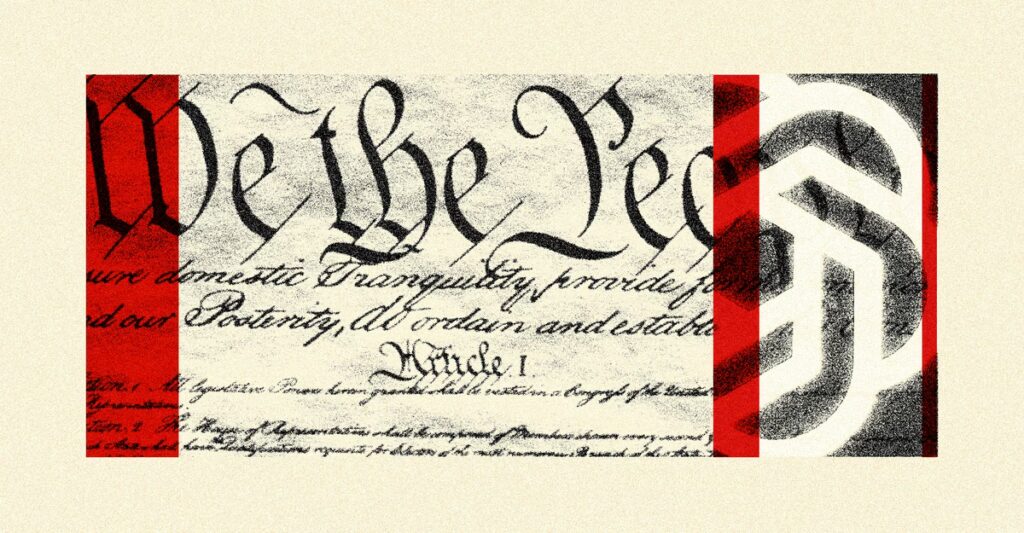 We the Peo
ure domestic Tranquility, provide fo
nd our Posterity, do ordain and establ
Article I.
ction. 1. All legislative Powers herein granted shall be vested in a Congress of the United
Representatives.
ction. 2. The House of Representatives shall be composed of Members chosen every second
shall have Qualifications requisite for Electors of the most numerous Branch of the State